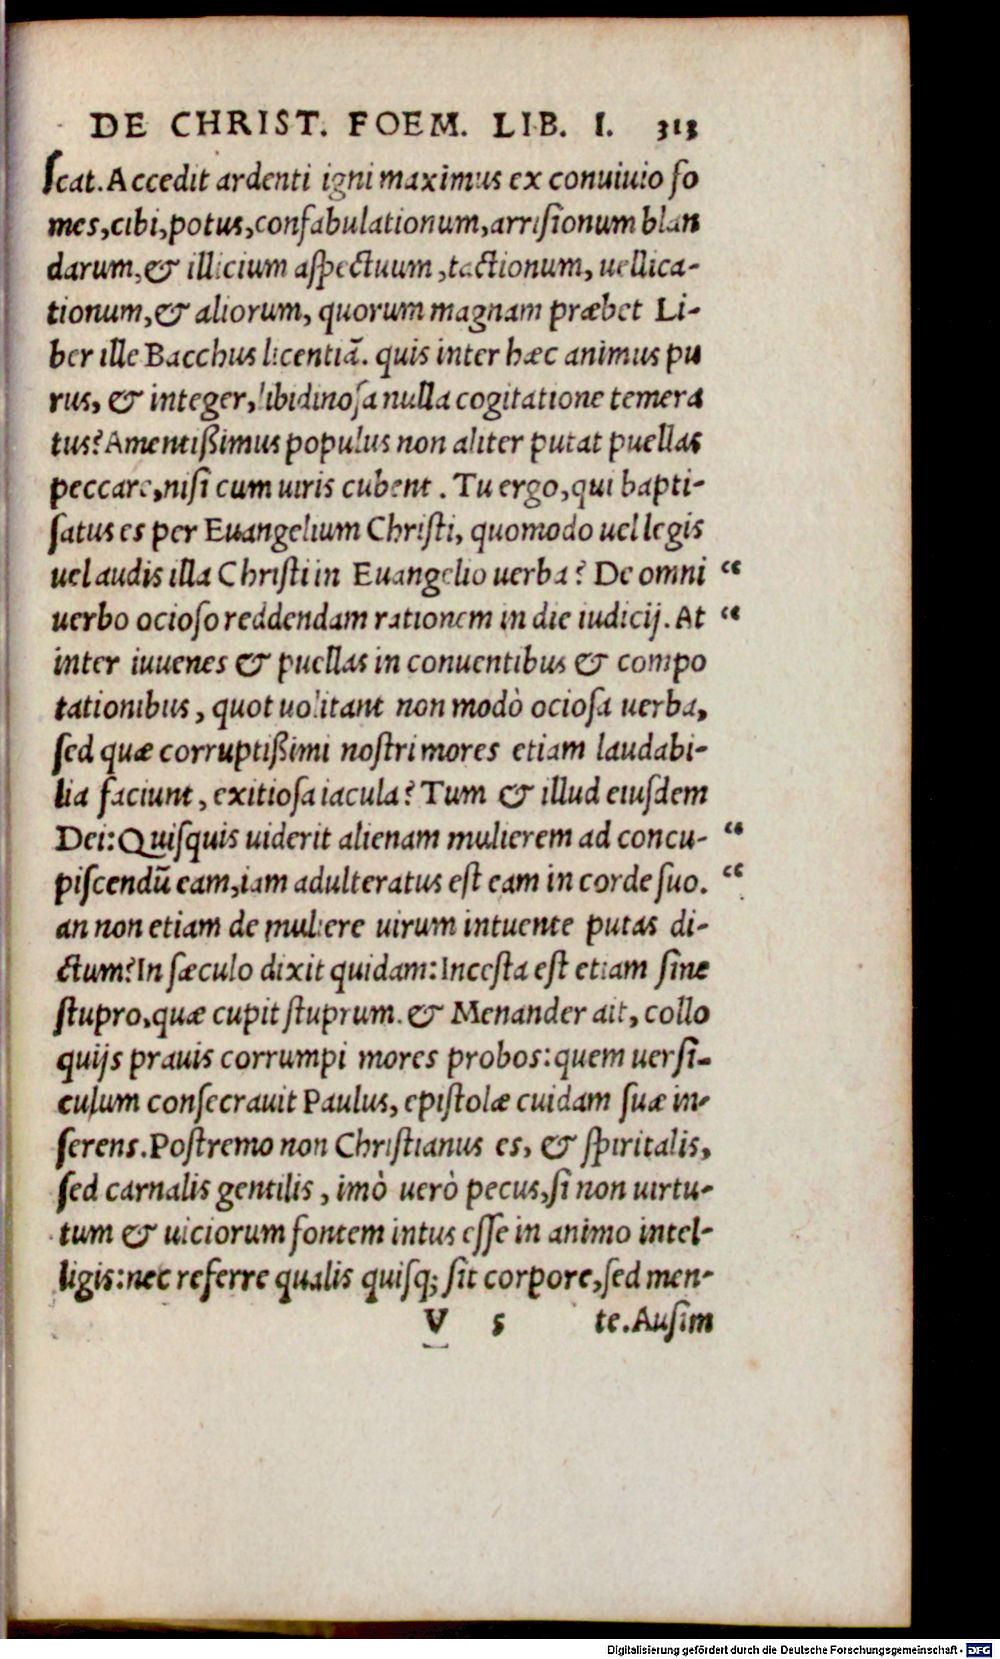 DE CHRIST. FOEM. LIB. I. 313
ſcat. Accedit ardenti igni maximus ex conuiuio fo
mes, cibi, potus, confabulationum, arriſionum blan
darum, & illicium aſpectuum, tactionum, uellica-
tionum, & aliorum, quorum magnam præbet Li-
ber ille Bacchus licentiā. quis inter hæc animus pu
rus, & integer, libidinoſa nulla cogitatione temera
tus? Amentißimus populus non aliter putat puellas
peccare, niſi cum uiris cubent. Tu ergo, qui bapti-
ſatus es per Euangelium Chriſti, quomodo uel legis
uel audis illa Chriſti in Euangelio uerba? De omni “
uerbo ocioſo reddendam rationem in die iudicij. At “
inter iuuenes & puellas in conuentibus & compo
tationibus, quot uolitant non modò ocioſa uerba,
ſed quæ corruptißimi noſtri mores etiam laudabi-
lia faciunt, exitioſa iacula? Tum & illud eiuſdem
Dei: Quiſquis uiderit alienam mulierem ad concu- “
piſcendū eam, iam adulteratus eſt eam in corde ſuo. “
an non etiam de muliere uirum intuente putas di-
ctum? In ſæculo dixit quidam: Inceſta eſt etiam ſine
ſtupro, quæ cupit ſtuprum. & Menander ait, collo
quijs prauis corrumpi mores probos: quem uerſi-
culum conſecrauit Paulus, epiſtolæ cuidam ſuæ in-
ſerens. Poſtremo non Chriſtianus es, & ſpiritalis,
ſed carnalis gentilis, imò uerò pecus, ſi non uirtu-
tum & uiciorum fontem intus eſſe in animo intel-
ligis: nec referre qualis quiſq; ſit corpore, ſed men-
V 5 te. Auſim
Digitalisierung gefördert durch die Deutsche Forschungsgemeinschaft - DFG